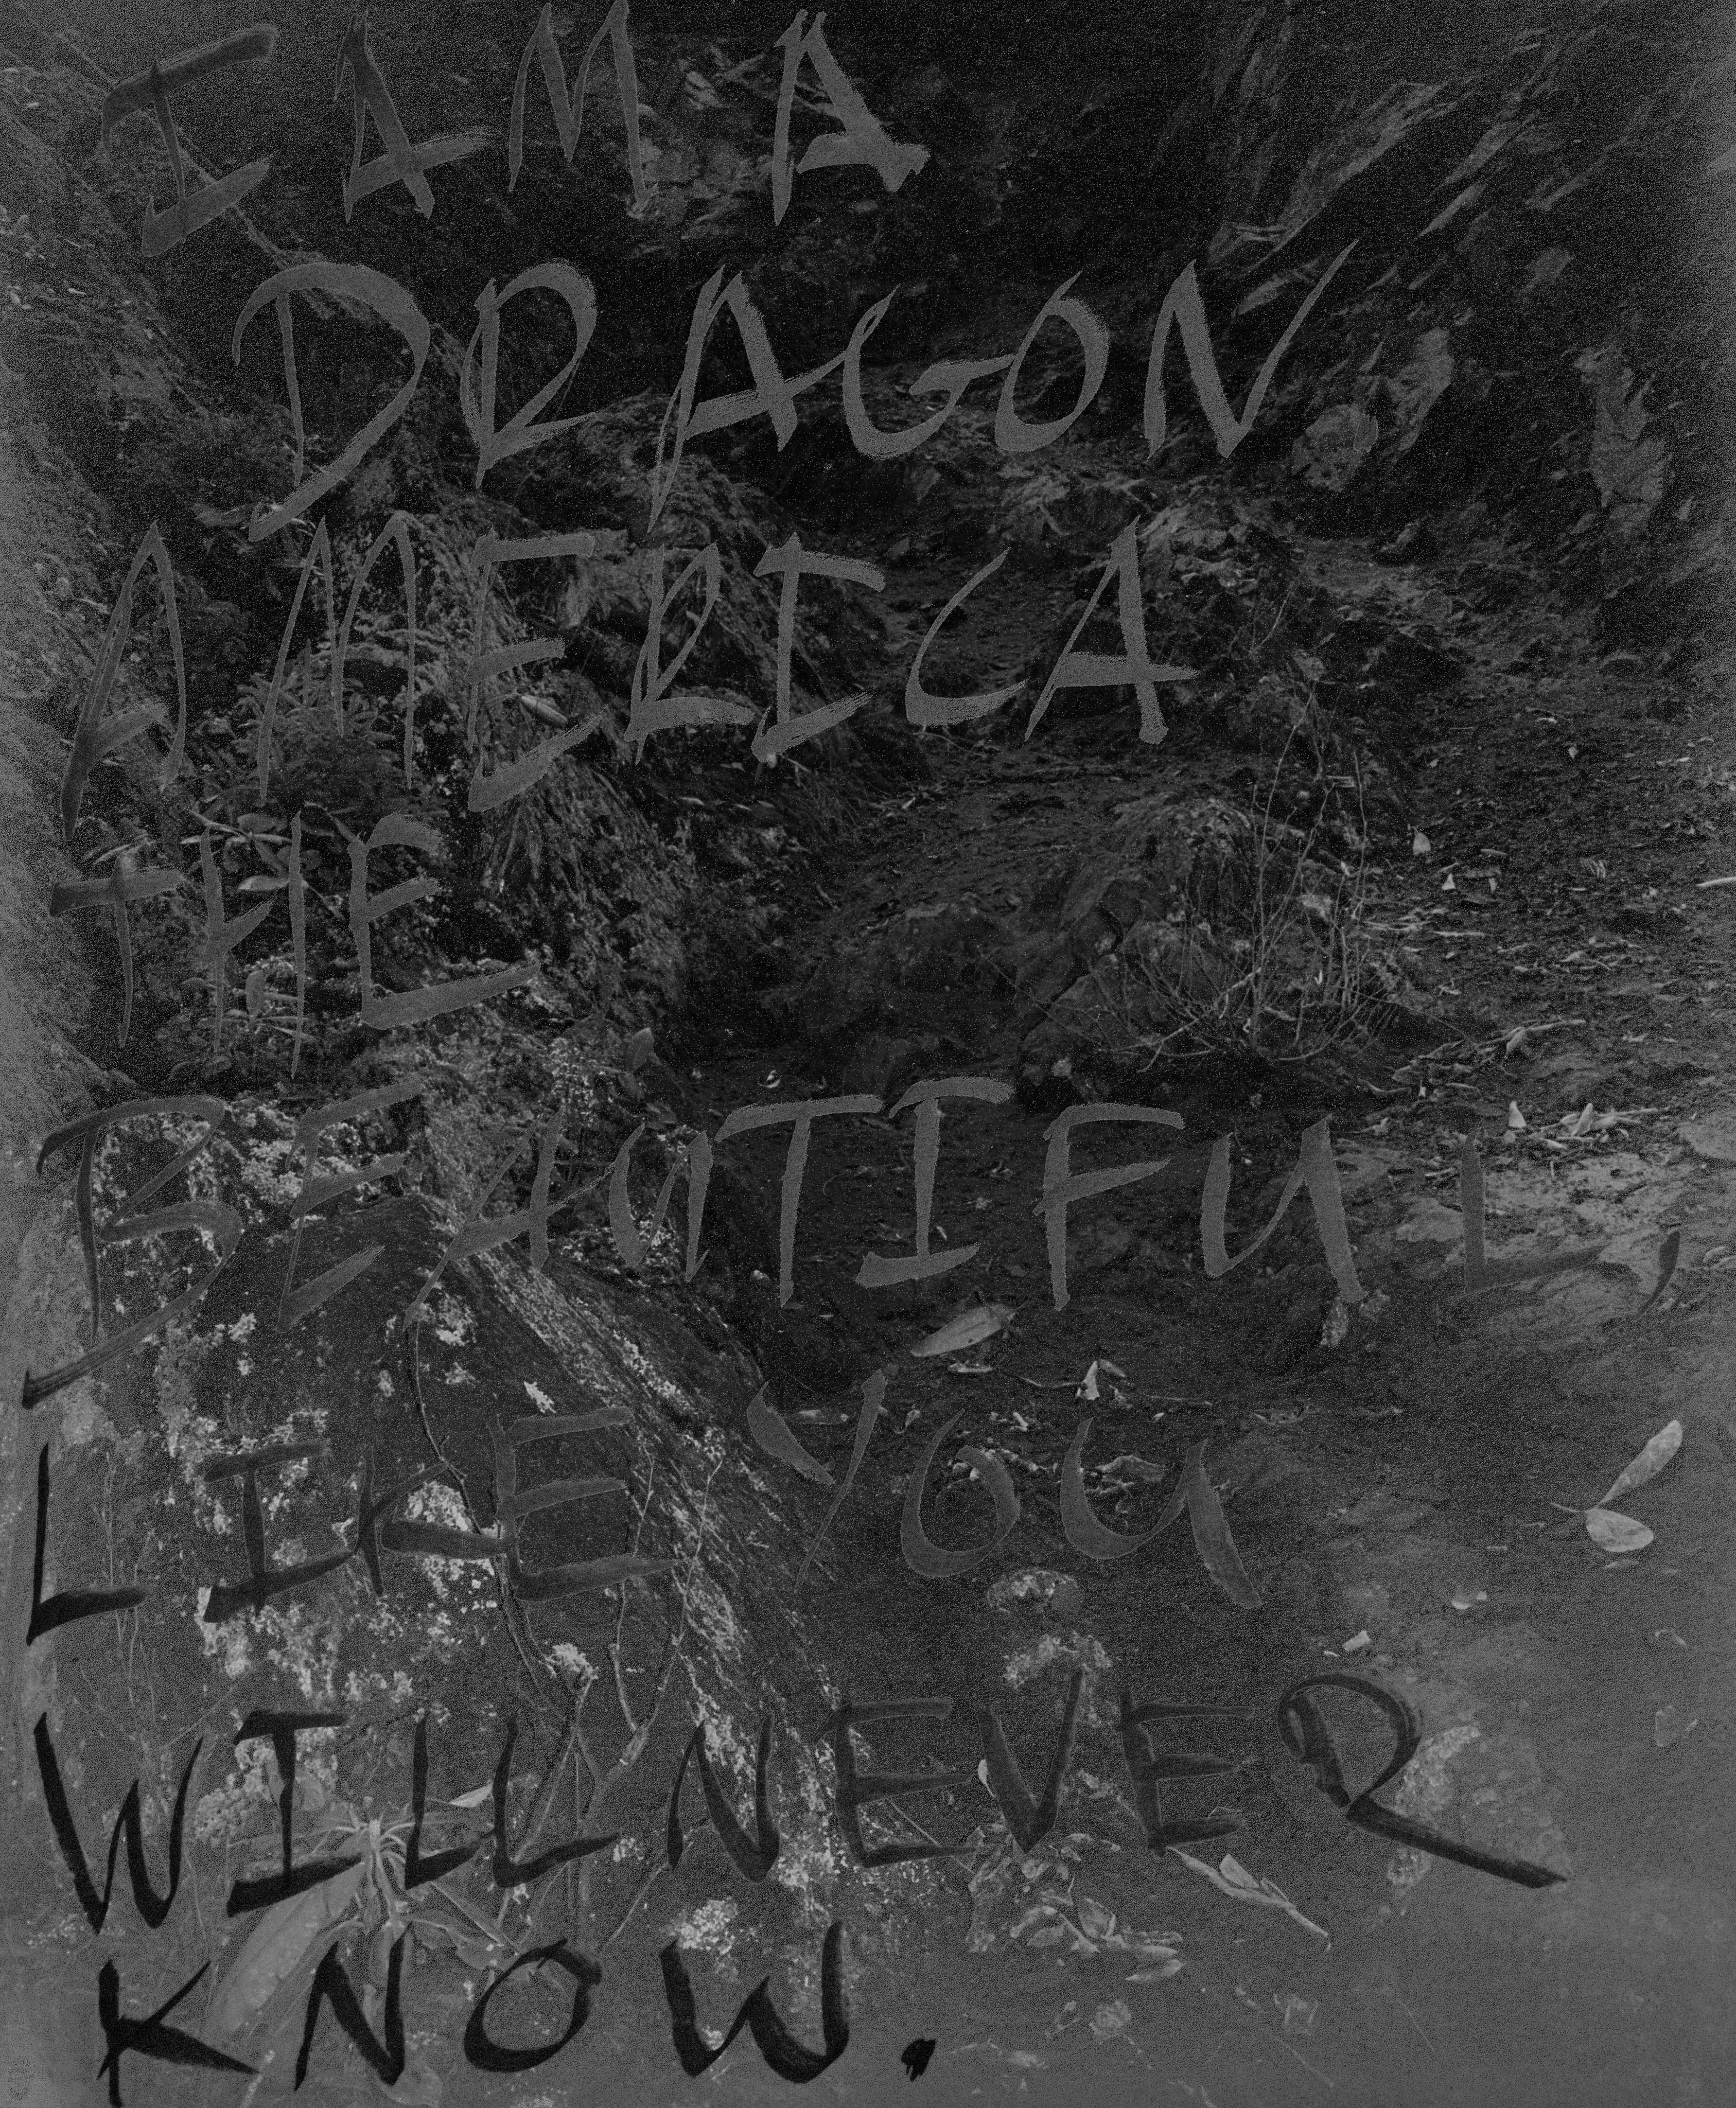 I AM A
DRAGON
AMERICA
THE
BEAUTIFUL,
LIKE YOU
WILL NEVER
KNOW.